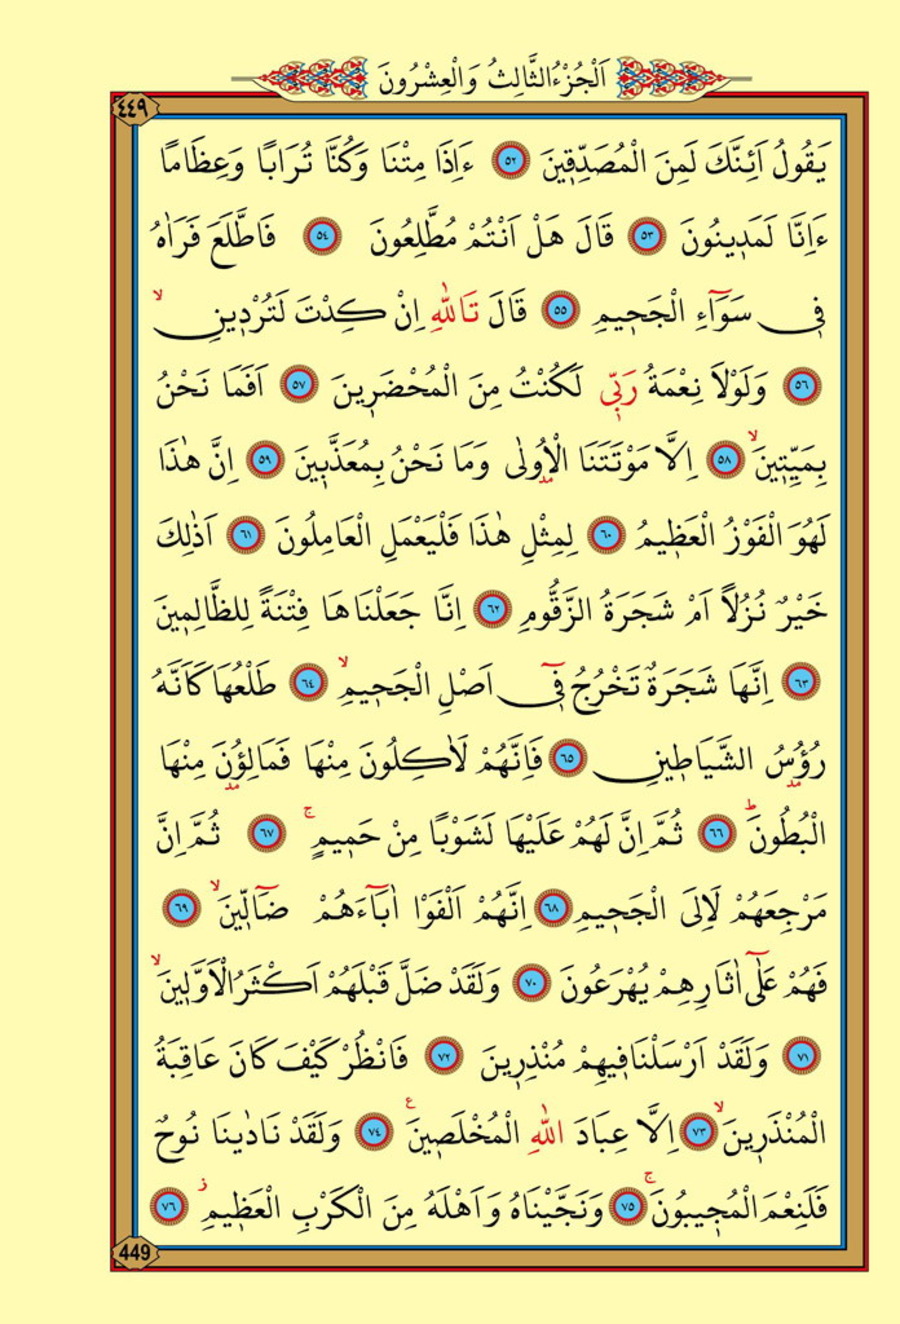 اَلْجُزْءُ الثَّالِثُ وَالْعِشْرُونَ
٤٤٩
يَقُولُ اَئِنَّكَ لَمِنَ الْمُصَدِّقٖينَ ٥٢ ءَاِذَا مِتْنَا وَكُنَّا تُرَابًا وَعِظَامًا
ءَاِنَّا لَمَدٖينُونَ ٥٣ قَالَ هَلْ اَنْتُمْ مُطَّلِعُونَ ٥٤ فَاطَّلَعَ فَرَاٰهُ
فٖى سَوَٓاءِ الْجَحٖيمِ ٥٥ قَالَ تَاللّٰهِ اِنْ كِدْتَ لَتُرْدٖينِ ۙ
٥٦ وَلَوْلَا نِعْمَةُ رَبّٖى لَكُنْتُ مِنَ الْمُحْضَرٖينَ ٥٧ اَفَمَا نَحْنُ
بِمَيِّتٖينَ ۙ ٥٨ اِلَّا مَوْتَتَنَا الْاُولٰى وَمَا نَحْنُ بِمُعَذَّبٖينَ ٥٩ اِنَّ هٰذَا
لَهُوَ الْفَوْزُ الْعَظٖيمُ ٦٠ لِمِثْلِ هٰذَا فَلْيَعْمَلِ الْعَامِلُونَ ٦١ اَذٰلِكَ
خَيْرٌ نُزُلًا اَمْ شَجَرَةُ الزَّقُّومِ ٦٢ اِنَّا جَعَلْنَاهَا فِتْنَةً لِلظَّالِمٖينَ
٦٣ اِنَّهَا شَجَرَةٌ تَخْرُجُ فٖٓى اَصْلِ الْجَحٖيمِ ۙ ٦٤ طَلْعُهَا كَاَنَّهُ
رُؤُسُ الشَّيَاطٖينِ ٦٥ فَاِنَّهُمْ لَاٰكِلُونَ مِنْهَا فَمَالِؤُنَ مِنْهَا
الْبُطُونَ ؕ ٦٦ ثُمَّ اِنَّ لَهُمْ عَلَيْهَا لَشَوْبًا مِنْ حَمٖيمٍ ۚ ٦٧ ثُمَّ اِنَّ
مَرْجِعَهُمْ لَاِلَى الْجَحٖيمِ ٦٨ اِنَّهُمْ اَلْفَوْا اٰبَٓاءَهُمْ ضَٓالّٖينَ ۙ ٦٩
فَهُمْ عَلٰٓى اٰثَارِهِمْ يُهْرَعُونَ ٧٠ وَلَقَدْ ضَلَّ قَبْلَهُمْ اَكْثَرُ الْاَوَّلٖينَ ۙ
٧١ وَلَقَدْ اَرْسَلْنَا فٖيهِمْ مُنْذِرٖينَ ٧٢ فَانْظُرْ كَيْفَ كَانَ عَاقِبَةُ
الْمُنْذَرٖينَ ۙ ٧٣ اِلَّا عِبَادَ اللّٰهِ الْمُخْلَصٖينَ ع ٧٤ وَلَقَدْ نَادٰينَا نُوحٌ
فَلَنِعْمَ الْمُجٖيبُونَ ۚ ٧٥ وَنَجَّيْنَاهُ وَاَهْلَهُ مِنَ الْكَرْبِ الْعَظٖيمِ ز ٧٦
449